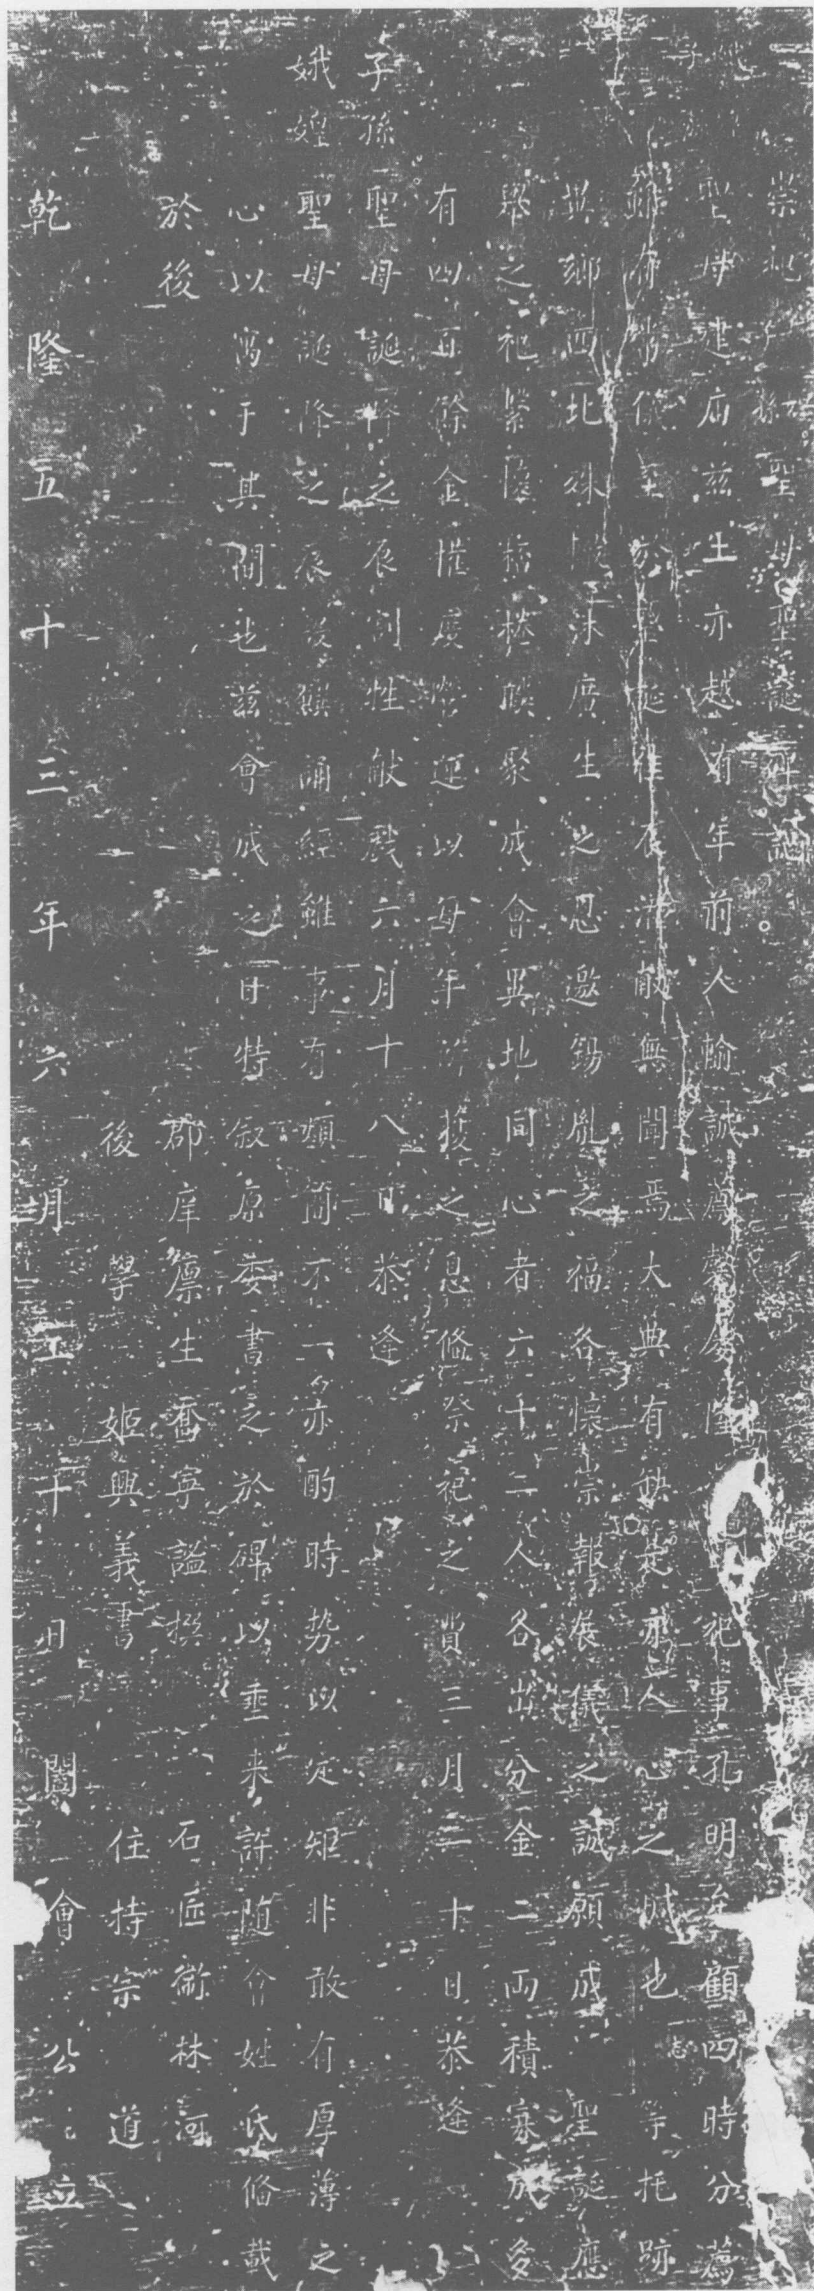 崇祀子孫聖母聖誕碑記
聖母建庙兹土亦越有年前人輸誠薦馨祀事孔明至顧四時分薦
雖有常儀至於聖誕往衣沭散無聞焉大典有缺是亦人心之憾也等托跡
異鄉西北殊沐廣生之恩邀錫胤之福各懷崇報展儀之誠願成聖誕應
舉之祀縈隆桮棬聯聚成會異地同心者六十二人各出分金二両積寡成多
有四百餘金慌度營運以每年所獲之息俻祭祀之費三月二十日恭逢
子孫聖母誕降之辰割牲献戲六月十八日恭逢
娥媓聖母誕降之辰設醮誦經雖事有煩简不一亦酌時势以定矩非敢有厚薄之
心以寓于其間也兹會成之日特叙原委書之於碑以垂来許随會姓氏俻載
於後
郡庠廪生喬寧謐撰 石匠衛林河
後學姬興義書 住持宗道
乾隆五十三年六月二十日闔會公立